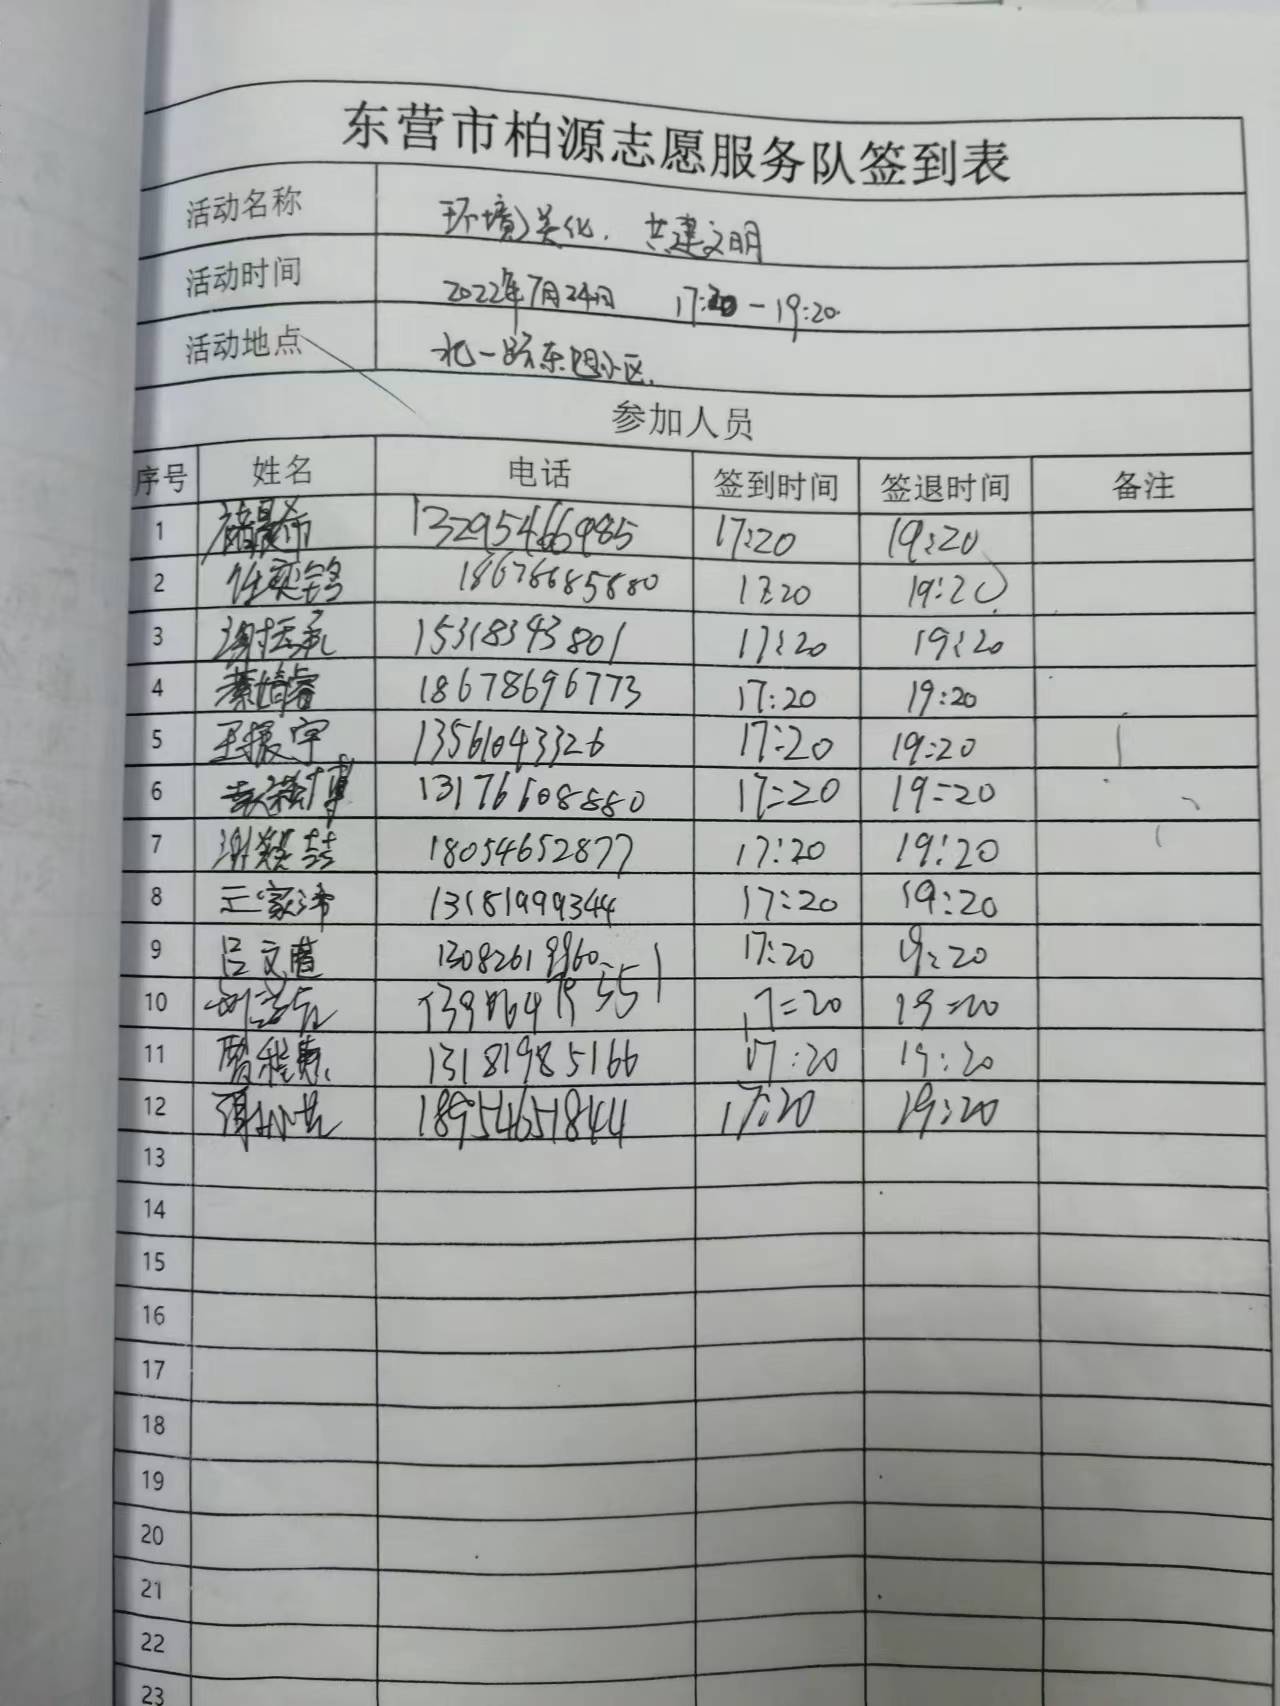 东营市柏源志愿服务队签到表
活动名称 环境美化. 共建文明
活动时间 2022年7月24日 17:20-19:20
活动地点 北一路东
参加人员
序号 姓名 电话 签到时间 签退时间 备注
1 13295466985 17:20 19:20
2 18678685880 17:20 19:20
3 15318343801 17:20 19:20
4 18678696773 17:20 19:20
5 王振宇 13561043326 17:20 19:20
6 13176608880 17:20 19:20
7 18054652877 17:20 19:20
8 王家沛 13181999344 17:20 19:20
9 吕文茜 17:20 19:20
10 17:20 19:20
11 13181985166 17:20 19:20
12 18954651844 17:20 19:20
13
14
15
16
17
18
19
20
21
22
23